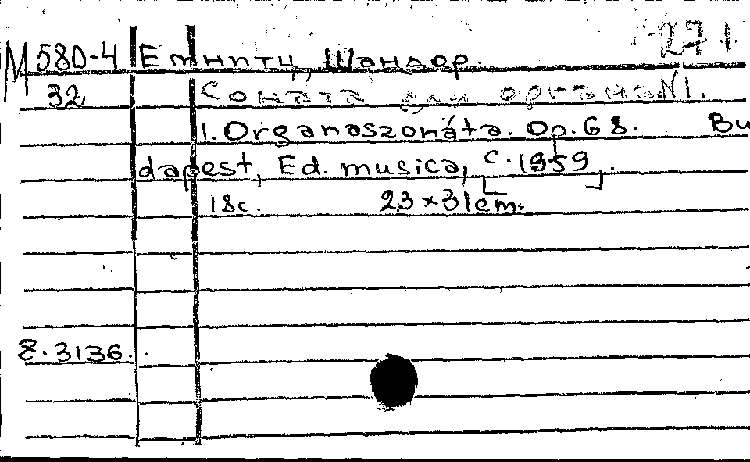 М580-4 Емнитц, Шандор.
32 Соната для органа №1.
1. Organaszonáta. Op. 68. Bu
dapest, Ed. musica, c. 1959.
18с. 23×31cm.
Z. 3136.